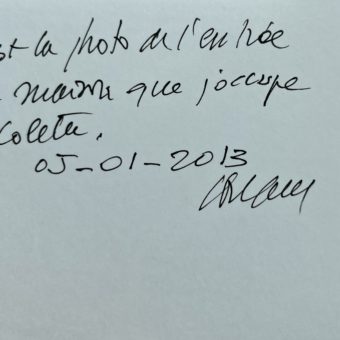 st la photo de l'entrée
maison que j'occupe
Coleta.
05-01-2013